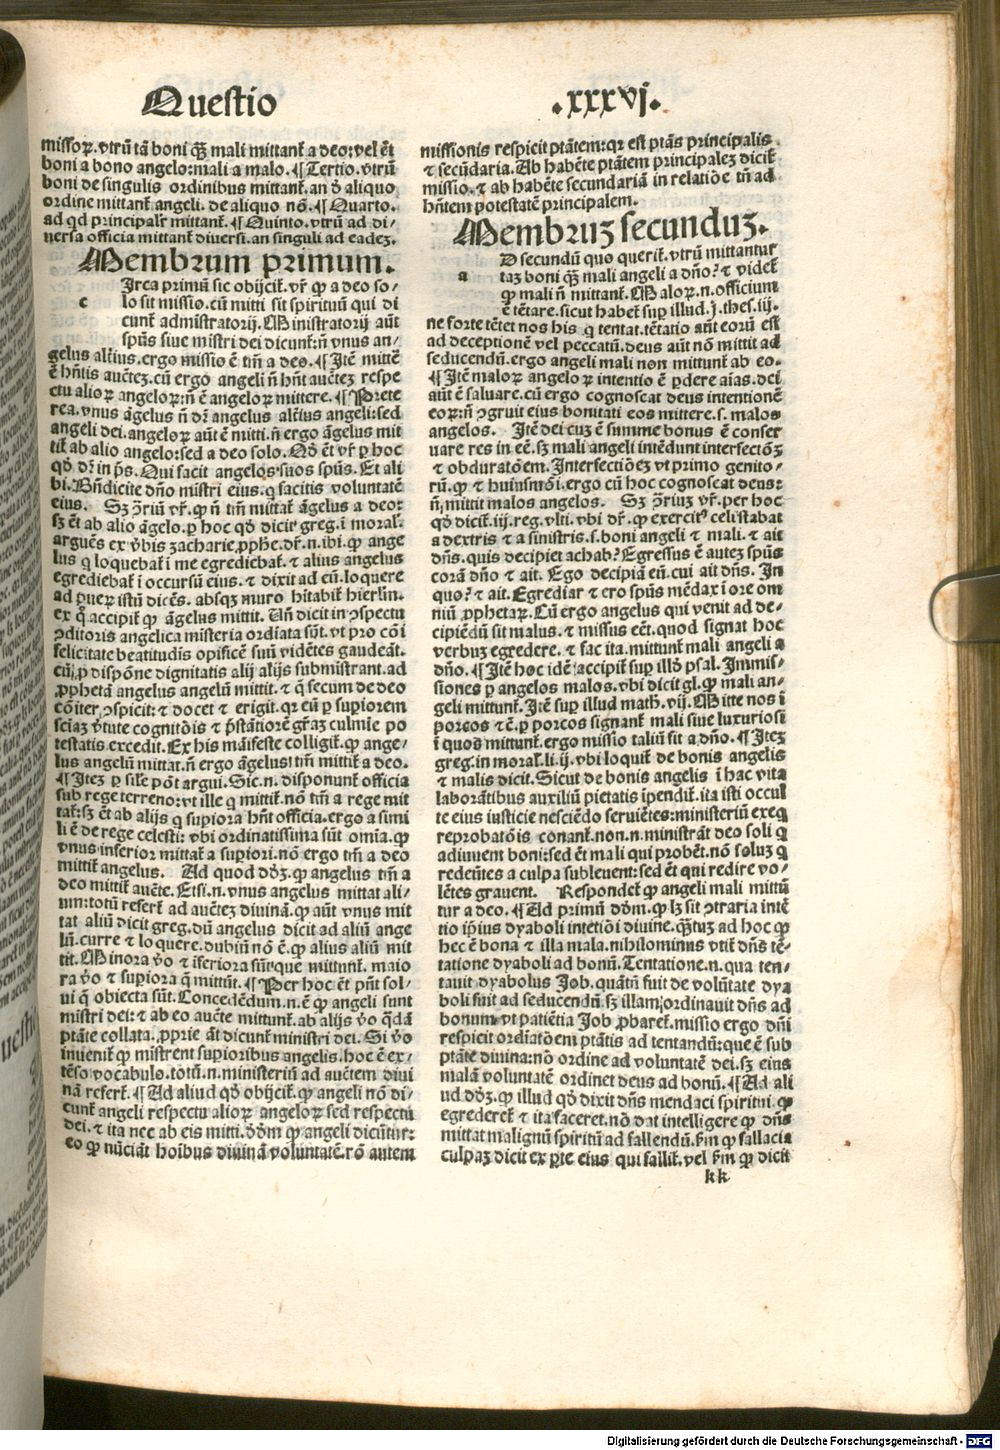 Questio
.xxxvj.
missoꝝ. vtrū tā boni qȝ mali mittant̄ a deo: vel ēt
boni a bono angelo: mali a malo. ¶ Tertio. vtrū
boni de singulis ordinibus mittant̄. an ꝟo aliquo
ordine mittant̄ angeli. de aliquo nō. ¶ Quarto.
ad qd principalr̄ mittant̄. ¶ Quinto. vtrū ad di-
uersa officia mittant̄ diuersi. an singuli ad eadeȝ.
Membrum primum.
c
Irca primū sic obijcit̄. vr̄ ꝙ a deo so-
lo sit missio. cū mitti sit spirituū qui di
cunt̄ admīstratorij. Ministratorij aūt
spūs siue mīstri dei dicunt̄: n̄ vnus an-
gelus alteriꝰ. ergo missio ē tm̄ a deo. ¶ Itē mittē
ē hn̄tis aucteȝ. cū ergo angeli n̄ hn̄t aucteȝ respe
ctu alioꝝ angeloꝝ: n̄ ē angeloꝝ mittere. ¶ Prete
rea. vnus āgelus n̄ dr̄ angelus alteriꝰ angeli: sed
angeli dei. angeloꝝ aūt ē mitti. n̄ ergo āgelus mit
tit̄ ab alio angelo: sed a deo solo. Qd̄ ēt vr̄ ꝑ hoc
qd̄ dr̄ in ps̄. Qui facit angelos suos spūs. Et ali
bi. Bn̄dicite dn̄o mīstri eius. q facitis voluntatē
eius. Sȝ ꝯ̄riū vr̄. ꝙ n̄ tm̄ mittat̄ āgelus a deo:
sȝ ēt ab alio āgelo. ꝑ hoc qd̄ dicit greg. i moral̄.
arguēs ex ꝟbis zacharie ꝓphe. dr̄. n. ibi. ꝙ ange
lus q loquebat̄ i me egrediebat̄. ⁊ alius angelus
egrediebat̄ i occursū eius. ⁊ dixit ad eū. loquere
ad pueꝝ istū dicēs. absqȝ muro hītabit̄ hierlm̄.
ex q̄ accipit̄ ꝙ āgelus mittit. Vn̄ dicit in ꝯspectu
ꝯditoris angelica misteria ordīata sūt. vt pro cōi
felicitate beatitudīs opificē suū vidētes gaudeāt.
cū, ꝓ dispōne dignitatis alij alijs submīstrant. ad
ꝓphetā angelus angelū mittit. ⁊ q̄ secum de deo
cōiter ꝯspicit: ⁊ docet ⁊ erigit. qꝛ eū ꝑ supiorem
sciaȝ ꝟtute cognitōis ⁊ pstātiorē grāȝ culmīe po
testatis excedit. Ex his māifeste colligit̄. ꝙ ange-
lus angelū mittat. n̄ ergo āgelus tm̄ mittit̄ a deo.
¶ Iteȝ ꝑ sile pōt argui. Sic. n. disponunt̄ officia
sub rege terreno: vt ille q mittit̄. nō tm̄ a rege mit
tat̄: sȝ ēt ab alijs q supiora hn̄t officia. ergo a simi
li ē de rege celesti: vbi ordinatissima sūt omīa. ꝙ
vnus inferior mittat̄ a supiori. nō ergo tm̄ a deo
mittit̄ angelus. Ad quod dōȝ. ꝙ angelus tm̄ a
deo mittit̄ aucte. Etsi. n. vnus angelus mittat ali-
um: totū refert̄ ad aucteȝ diuinā. ꝙ aūt vnus mit
tat aliū dicit greg. dū angelus dicit ad aliū ange
lū. curre ⁊ loquere. dubiū nō ē. ꝙ alius aliū mit
tit. Minora ꝟo ⁊ īferiora sūt que mittunt̄. maio
ra ꝟo ⁊ supiora q̄ mittūt. ¶ Per hoc ēt pn̄t sol-
ui q̄ obiecta sūt. Concedēdum. n. ē ꝙ angeli sunt
mīstri dei: ⁊ ab eo aucte mittunt̄. ab alijs ꝟo q̄dā
ptāte collata. ꝓprie āt dicunt̄ ministri dei. Si ꝟo
inuenit̄ ꝙ mīstrent supioribus angelis. hoc ē ex-
tēso vocabulo. totū. n. ministeriū ad auctem diui
nā refert̄. ¶ Ad aliud qd̄ obijcit̄. ꝙ angeli nō di-
cunt̄ angeli respectu alioꝝ angeloꝝ sed respectu
dei. ⁊ ita nec ab eis mitti. dōm ꝙ angeli dicūtur:
eo ꝙ nūciāt hoībus diuinā voluntatē. rō autem
missionis respicit ptātem: qꝛ est ptās principalis
⁊ secūdaria. Ab habēte ptātem principaleȝ dicit̄
missio. ⁊ ab habēte secundariā in relatiōe tn̄ ad
hn̄tem potestatē principalem.
Membruȝ secunduȝ.
a
D secundū quo querit̄. vtrū mittantur
taȝ boni qȝ mali angeli a dn̄o? ⁊ videt̄
ꝙ mali n̄ mittant̄. Maloꝝ. n. officium
ē tētare. sicut habet̄ sup illud. j. thes. iij.
ne forte tētet nos his q tentat. tētatio aūt eorū est
ad deceptionē vel peccatū. deus aūt nō mittit ad
seducendū. ergo angeli mali non mittunt̄ ab eo.
¶ Itē maloꝝ angeloꝝ intentio ē ꝑdere aīas. dei
aūt ē saluare. cū ergo cognoscat deus intentionē
eoꝝ: n̄ ꝯgruit eius bonitati eos mittere. s. malos
angelos. Itē dei cuȝ ē summe bonus ē conser
uare res in eē. sȝ mali angeli intēdunt interfectōȝ
⁊ obduratōem. Interfectiōeȝ vt primo genito-
rū. ꝙ ⁊ huiusmōi. ergo cū hoc cognoscat deus:
n̄, mittit malos angelos. Sȝ ꝯ̄riuȝ vr̄. per hoc
qd̄ dicit̄. iij. reg. vlti. vbi dr̄. ꝙ exercitꝰ celi stabat
a dextris ⁊ a sinistris. s. boni angeli ⁊ mali. ⁊ ait
dn̄s. quis decipiet achab? Egressus ē auteȝ spūs
corā dn̄o ⁊ ait. Ego decipiā eū. cui ait dn̄s. In
quo? ⁊ ait. Egrediar ⁊ ero spūs mēdax i ore om
niū ꝓphetaꝝ. Cū ergo angelus qui venit ad de-
cipiēdū sit malus. ⁊ missus eēt. quod signat hoc
verbuȝ egredere. ⁊ fac ita. mittunt̄ mali angeli a
dn̄o. ¶ Itē hoc idē accipit̄ sup illd̄ psal. Immis-
siones ꝑ angelos malos. vbi dicit gl̄. ꝙ mali an-
geli mittunt̄. Itē sup illud math. vij. Mitte nos ī
porcos ⁊cē. ꝑ porcos signant̄ mali siue luxuriosi
ī quos mittunt̄. ergo missio taliū sit a dn̄o. ¶ Iteȝ
greg. in moral̄. li. ij. vbi loquit̄ de bonis angelis
⁊ malis dicit. Sicut de bonis angelis ī hac vita
laborātibus auxiliū pietatis īpendit̄. ita isti occul
te eius iusticie nesciēdo seruiētes: ministeriū exeq
reprobatōis conant̄. non. n. ministrāt deo soli q
adiuuent boni: sed ēt mali qui probēt. nō soluȝ q
redeūtes a culpa subleuent: sed ēt qui redire vo-
lētes grauent. Respondet̄ ꝙ angeli mali mittū
tur a deo. ¶ Ad primū dōm. ꝙ lȝ sit ꝯtraria intē
tio ipius dyaboli intetiōi diuine. qȝtuȝ ad hoc ꝙ
hec ē bona ⁊ illa mala. nihilominus vtit̄ dn̄s tē-
tatione dyaboli ad bonū. Tentatione. n. qua ten-
tauit dyabolus Job. quātū fuit de volūtate dya
boli fuit ad seducendū. sȝ illam, ordinauit dn̄s ad
bonum. vt patiētia Job ꝓbaret̄. missio ergo dn̄i
respicit ordiatōem ptātis ad tentandū: que ē sub
ptāte diuina: nō ordine ad voluntatē dei. sȝ eius
malā voluntatē ordinet deus ad bonū. ¶ Ad ali
ud dōȝ. ꝙ illud qd̄ dixit dn̄s mendaci spiritui. ꝙ
egrederet̄ ⁊ ita faceret. nō dat intelligere ꝙ dn̄s
mittat malignū spiritū ad fallendū. f̄m ꝙ fallacia
culpaȝ dicit ex ꝑte eius qui fallit̄. vel f̄m ꝙ dicit
kk
Digitalisierung gefördert durch die Deutsche Forschungsgemeinschaft - DFG